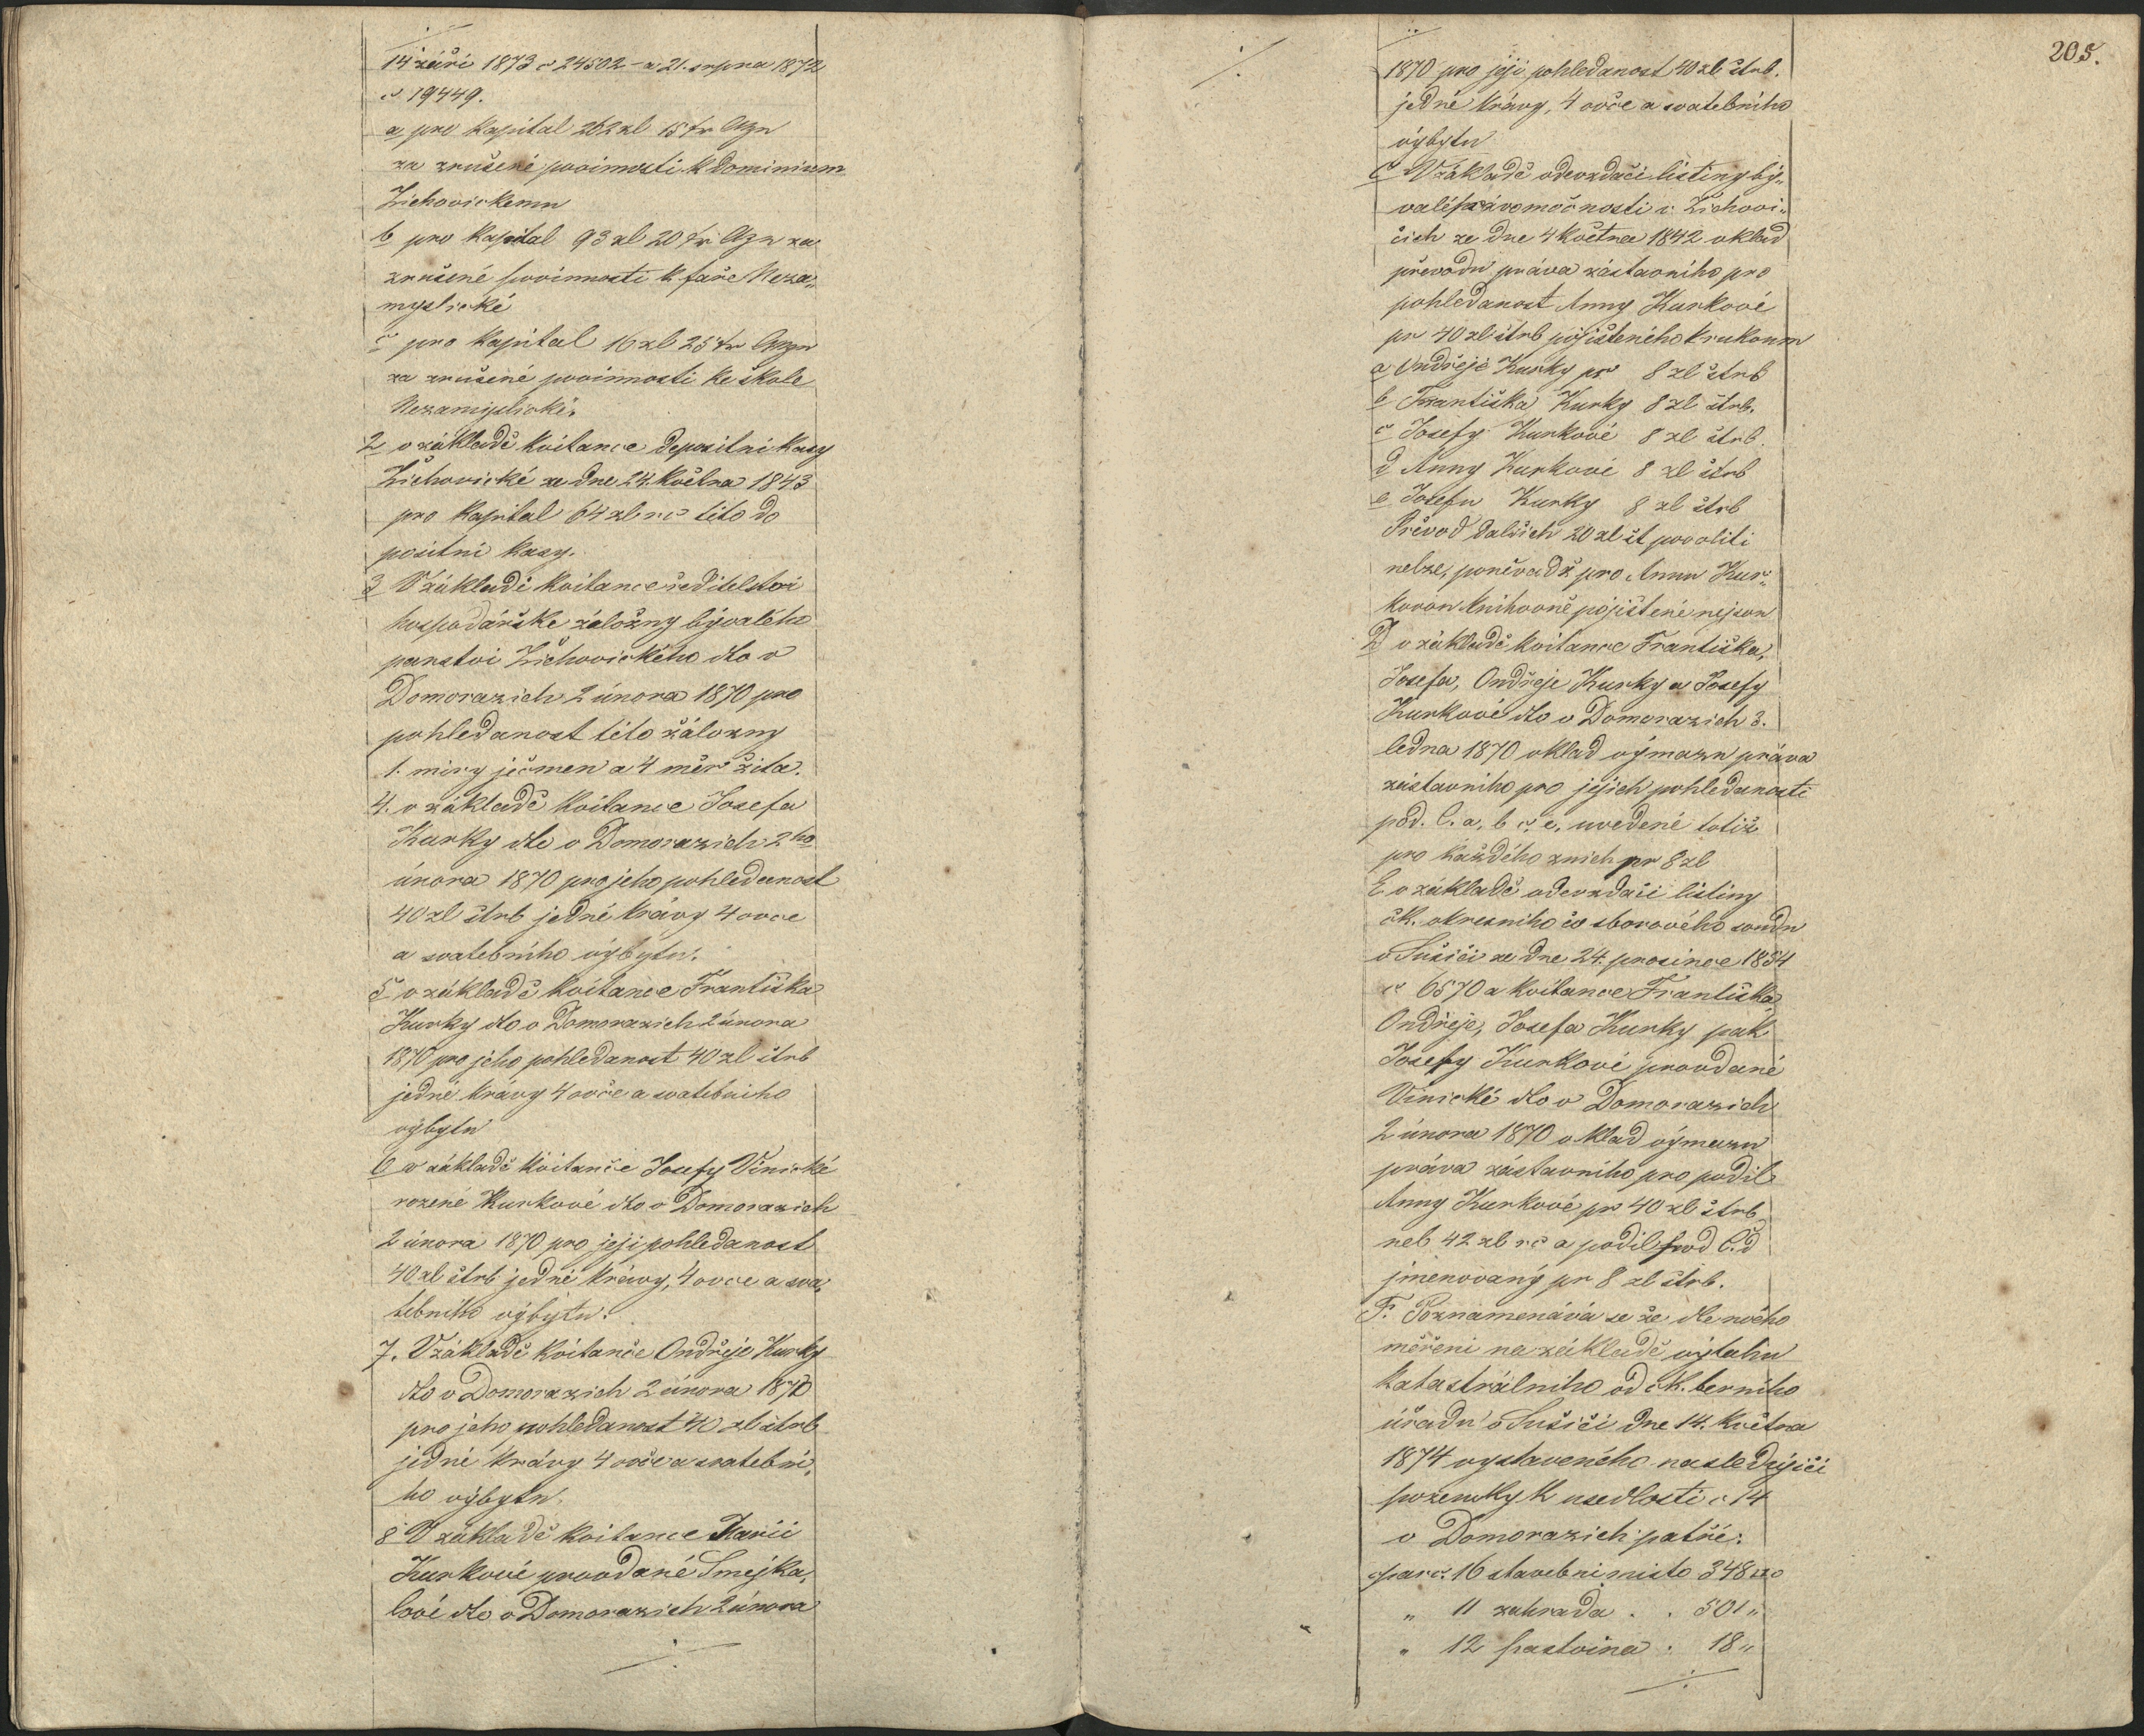 14 září 1873 č 24502 - a 21. srpna 1872
č. 19449.
a pro kapital 262 zl 15 kr
za zrušené povinnosti k Dominium
Žichovickemu
b pro kapital 93 zl 20 kr za
zrušené povinnosti k faře Neza„
myslické
c pro kapital 16 zl 25 kr
za zrušené povinnosti ke škole
Nezamyslické.
2 v základě kvitance depositní kasy
Žichovické ze dne 24. května 1843
pro kapital 64 zl rč této de
positni kasy.
3 V základě kvitance ředitelství
hospodářské záložny bývalého
panství Žichovického dto v
Domorazich 2 února 1870 pro
pohledanost této záložny
1. miry ječmen a 4 měr žita.
4. v základě kvitance Josefa
Kurky dto v Domorazich 2ho
února 1870 pro jeho pohledanost
40 zl štrb jedné krávy 4 ovce
a svatebního výbytu.
5 v základě kvitance Františka
Kurky dto v Domorazich 2 února
1870 pro jeho pohledanost 40 zl štrb
jedné krávy 4 ovce a svatebního
výbytu
6 v základě kvitance Josefy Vinické
rozené Kurkové dto v Domorazich
2 února 1870 pro její pohledanost
40 zl štrb jedné krávy, 4 ovce a sva„
tebního výbytu.
7. V základě kvitance Ondřeje Kurky
dto v Domorazich 2 února 1870
pro jeho pohledanost 40 zl štrb
jedné krávy 4 ovce a svatební„
ho výbytu.
8 V základě kvitance Marii
Kurkové provdané Smejka„
lové dto v Domorazich 2 února
205.
1870 pro její pohledanost 40 zl štrb.
jedné krávy, 4 ovce a svatebního
výbytu
C V základě odevzdací listiny bý„
valé pravomocnosti v Žichovi„
cich ze dne 4 května 1842 vklad
převodu práva zástavního pro
pohledanost Anny Kurkové
pr 40 zl štrb pojištěného k rukoum
a Ondřeje Kurky pr 8 zl štrb
b Františka Kurky 8 zl štrb.
c Josefy Kurkové 8 zl štrb.
d Anny Kurkové 8 zl štrb
e Josefu Kurky 8 zl štrb
Převod dalších 20 zl št povoliti
nelze, poněvadž pro Annu Kur„
kovou knihovně pojištěné nejsou
D v základě kvitance Františka,
Josefa, Ondřeje Kurky a Josefy
Kurkové dto v Domorazich 3.
ledna 1870 vklad výmazu práva
zástavního pro jejich pohledanosti
pod. C. a, b c, e, uvedené totiž
pro každého znich pr 8 zl
E v základě odevzdací listiny
ck. okresního co sborového soudu
v Sušici ze dne 24. prosince 1854
č 6570 a kvitance Františka,
Ondřeje, Josefa Kurky pak
Josefy Kurkové provdané
Vinické dto v Domorazich
2 února 1870 vklad výmazu
práva zástavního pro podil
Anny Kurkové pr 40 zl štrb
neb 42 zl rč a podil pod C. d
jmenovaný pr 8 zl štrb.
F. Poznamenává se že dle nového
měření na základě výtahu
katastrálního od ck. berního
úřadu v Sušici dne 14. května
1874 vystaveného nasledující
pozemky k usedlosti č 14
v Domorazich patří:
parc. 16 stavební místo 348
„ 11 zahrada . . 501 „
„ 12 pastvina . 18 „